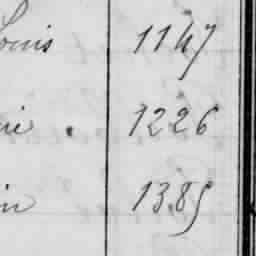 Louis 1147
rie . 1226
in 1385